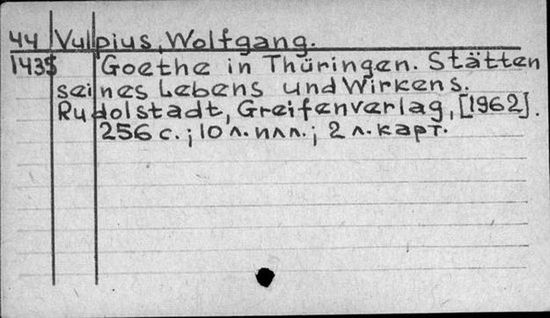 44 Vulpius, Wolfgang.
1435 Goethe in Thüringen. Stätten
seines Lebens und Wirkens.
Rudolstadt, Greifenverlag, [1962].
256 с.; 10 л. илл.; 2 л. карт.